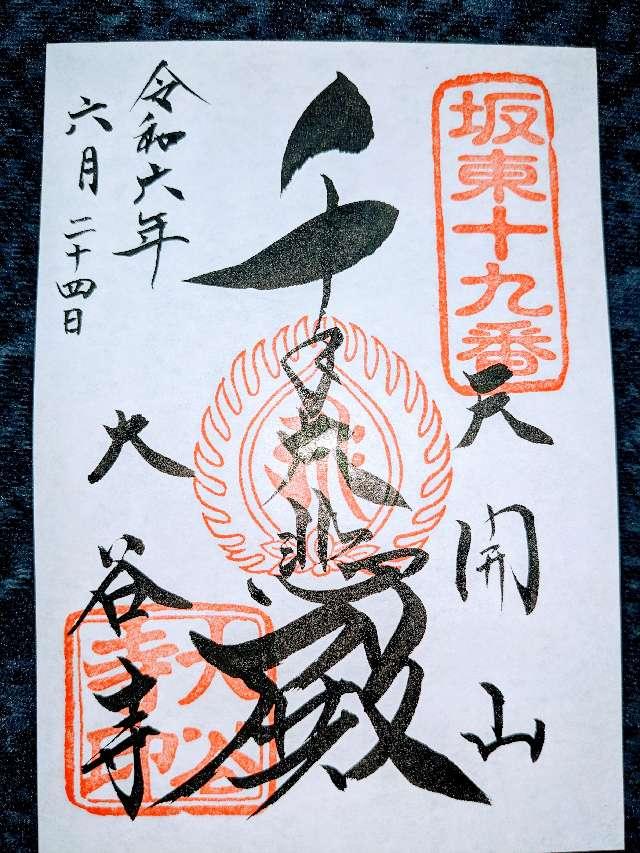 坂東十九番
天開山
千手大悲殿
大谷寺
大谷
寺印
令和六年
六月二十四日